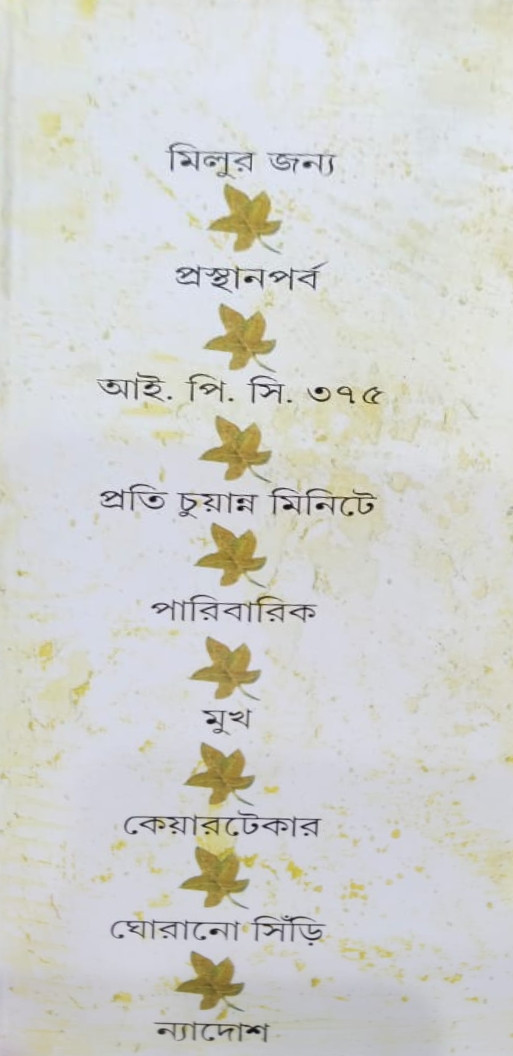 মিলুর জন্য
প্রস্থানপর্ব
আই. পি. সি. ৩৭৫
প্রতি চুয়ান্ন মিনিটে
পারিবারিক
মুখ
কেয়ারটেকার
ঘোরানো সিঁড়ি
ন্যাদোশ